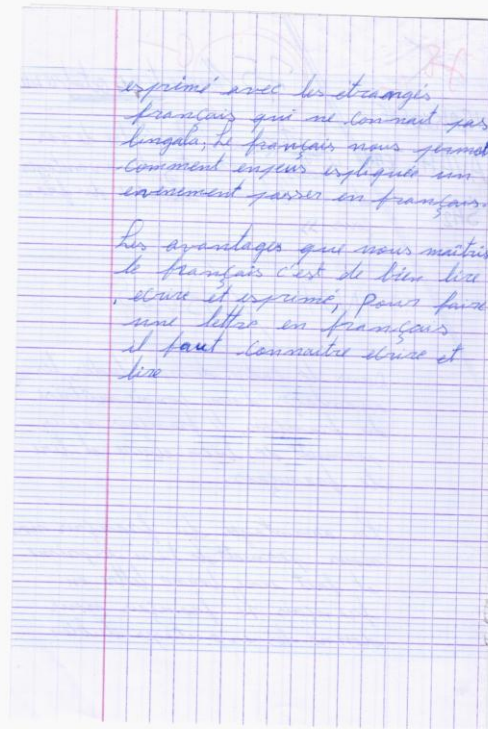 esprimé avec les étrangés
français qui ne connait pas
lingala, Le français nous permet
comment enjeus espliquer un
evenement passer en français.
Les avantages que nous maîtris
le français c'est de bien lire
, ecrire et esprimé, pour faire
une lettre en français
il faut connaitre ecrire et
lire